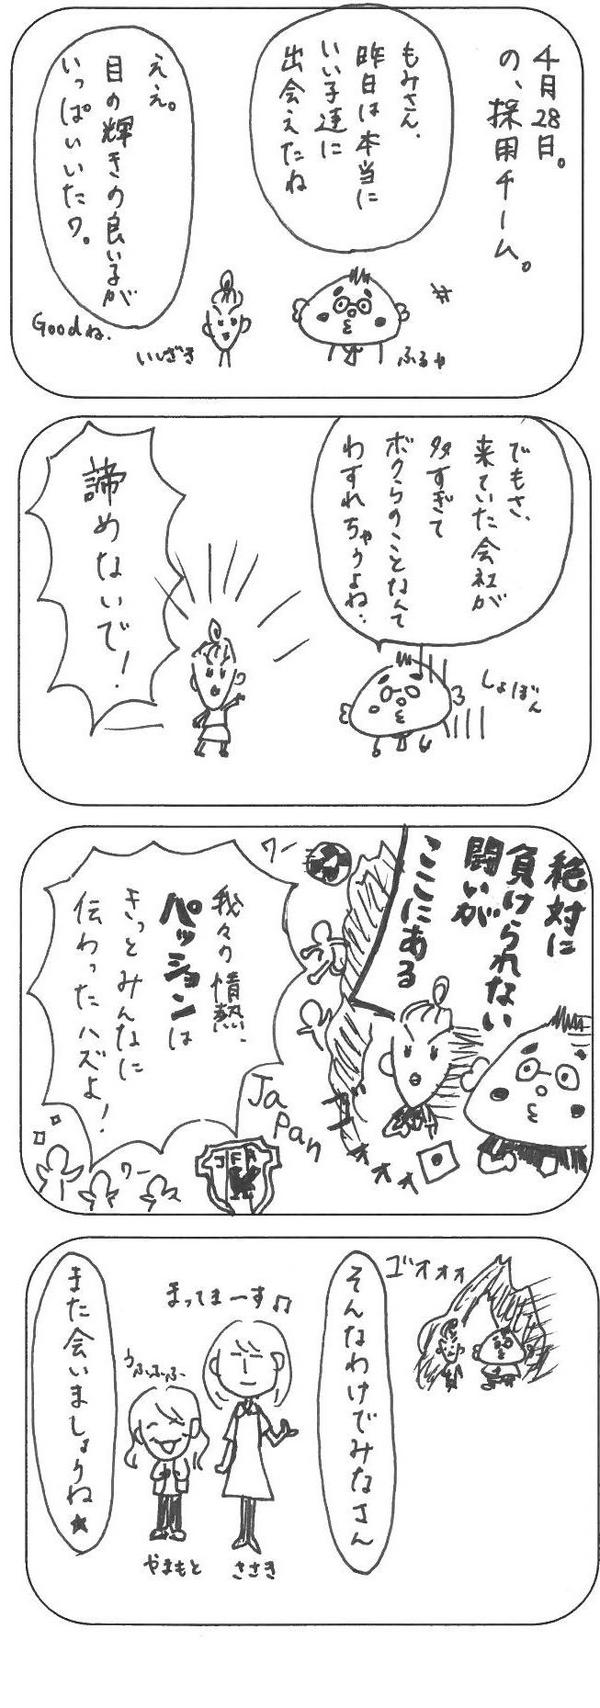 4月28日。
の、採用チーム。
もみさん、
昨日は本当に
いい子達に
出会えたね
ええ。
目の輝きの良い子が
いっぱいいたワ。
Goodね.
いしざき
ふるや
でもさ、
来ていた会社が
多すぎて
ボクらのことなんて
わすれちゃうよね…
しょぼん
諦めないで!
絶対に
負けられない
闘いが
ここにある
ワー
我々の情熱、
パッションは
きっとみんなに
伝わったハズよ!
Japan
ゴォォォ
ワー
JFA
ゴォォォ
そんなわけでみなさん
まってまーす♫
うふふふー
また会いましょうね★
やまもと
ささき